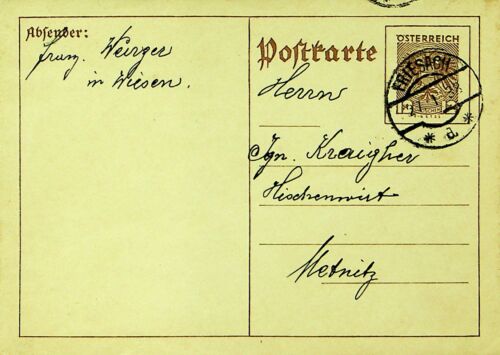 Absender:
Franz Weirzer
in Wiesen.
Postkarte
ÖSTERREICH
FRIESACH
* d. *
Herrn
Ign. Kraigher
Hischenwirt
Metnitz